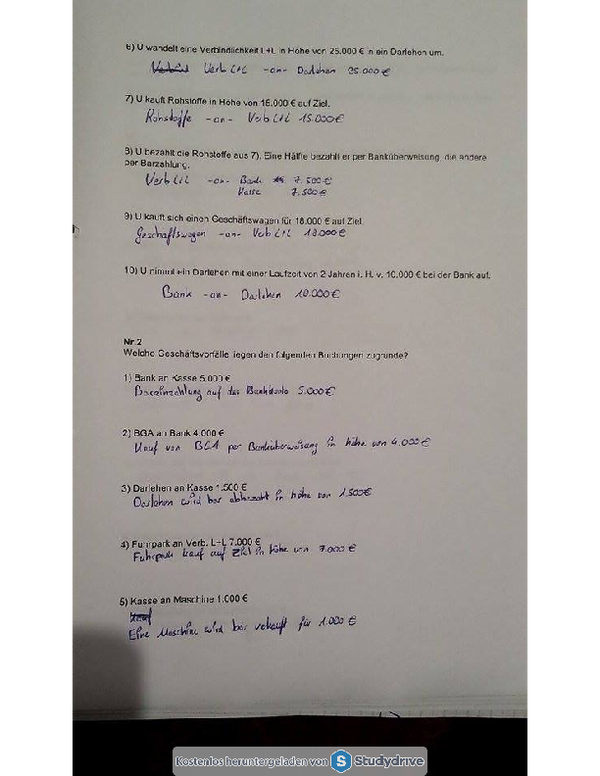 6) U wandelt eine Verbindlichkeit L+L in Höhe von 25.000 € in ein Darlehen um.
Verb L+L -an- Darlehen 25.000 €
7) U kauft Rohstoffe in Höhe von 15.000 € auf Ziel.
Rohstoffe -an- Verb L+L 15.000 €
8) U bezahlt die Rohstoffe aus 7). Eine Hälfte bezahlt er per Banküberweisung, die andere
per Barzahlung.
Verb L+L -an- Bank 7.500 €
Kasse 7.500 €
9) U kauft sich einen Geschäftswagen für 18.000 € auf Ziel.
Geschäftswagen -an- Verb L+L 18.000 €
10) U nimmt ein Darlehen mit einer Laufzeit von 2 Jahren i. H. v. 10.000 € bei der Bank auf.
Bank -an- Darlehen 10.000 €
Nr.2
Welche Geschäftsvorfälle liegen den folgenden Buchungen zugrunde?
1) Bank an Kasse 5.000 €
Bareinzahlung auf das Bankkonto 5.000 €
2) BGA an Bank 4.000 €
Kauf von BGA per Banküberweisung in höhe von 4.000 €
3) Darlehen an Kasse 1.500 €
Darlehen wird bar abbezahlt in höhe von 1.500 €
4) Fuhrpark an Verb. L+L 7.000 €
Fuhrpark kauf auf Ziel in höhe von 7.000 €
5) Kasse an Maschine 1.000 €
Eine Maschine wird bar vekauft für 1.000 €
Kostenlos heruntergeladen von S Studydrive